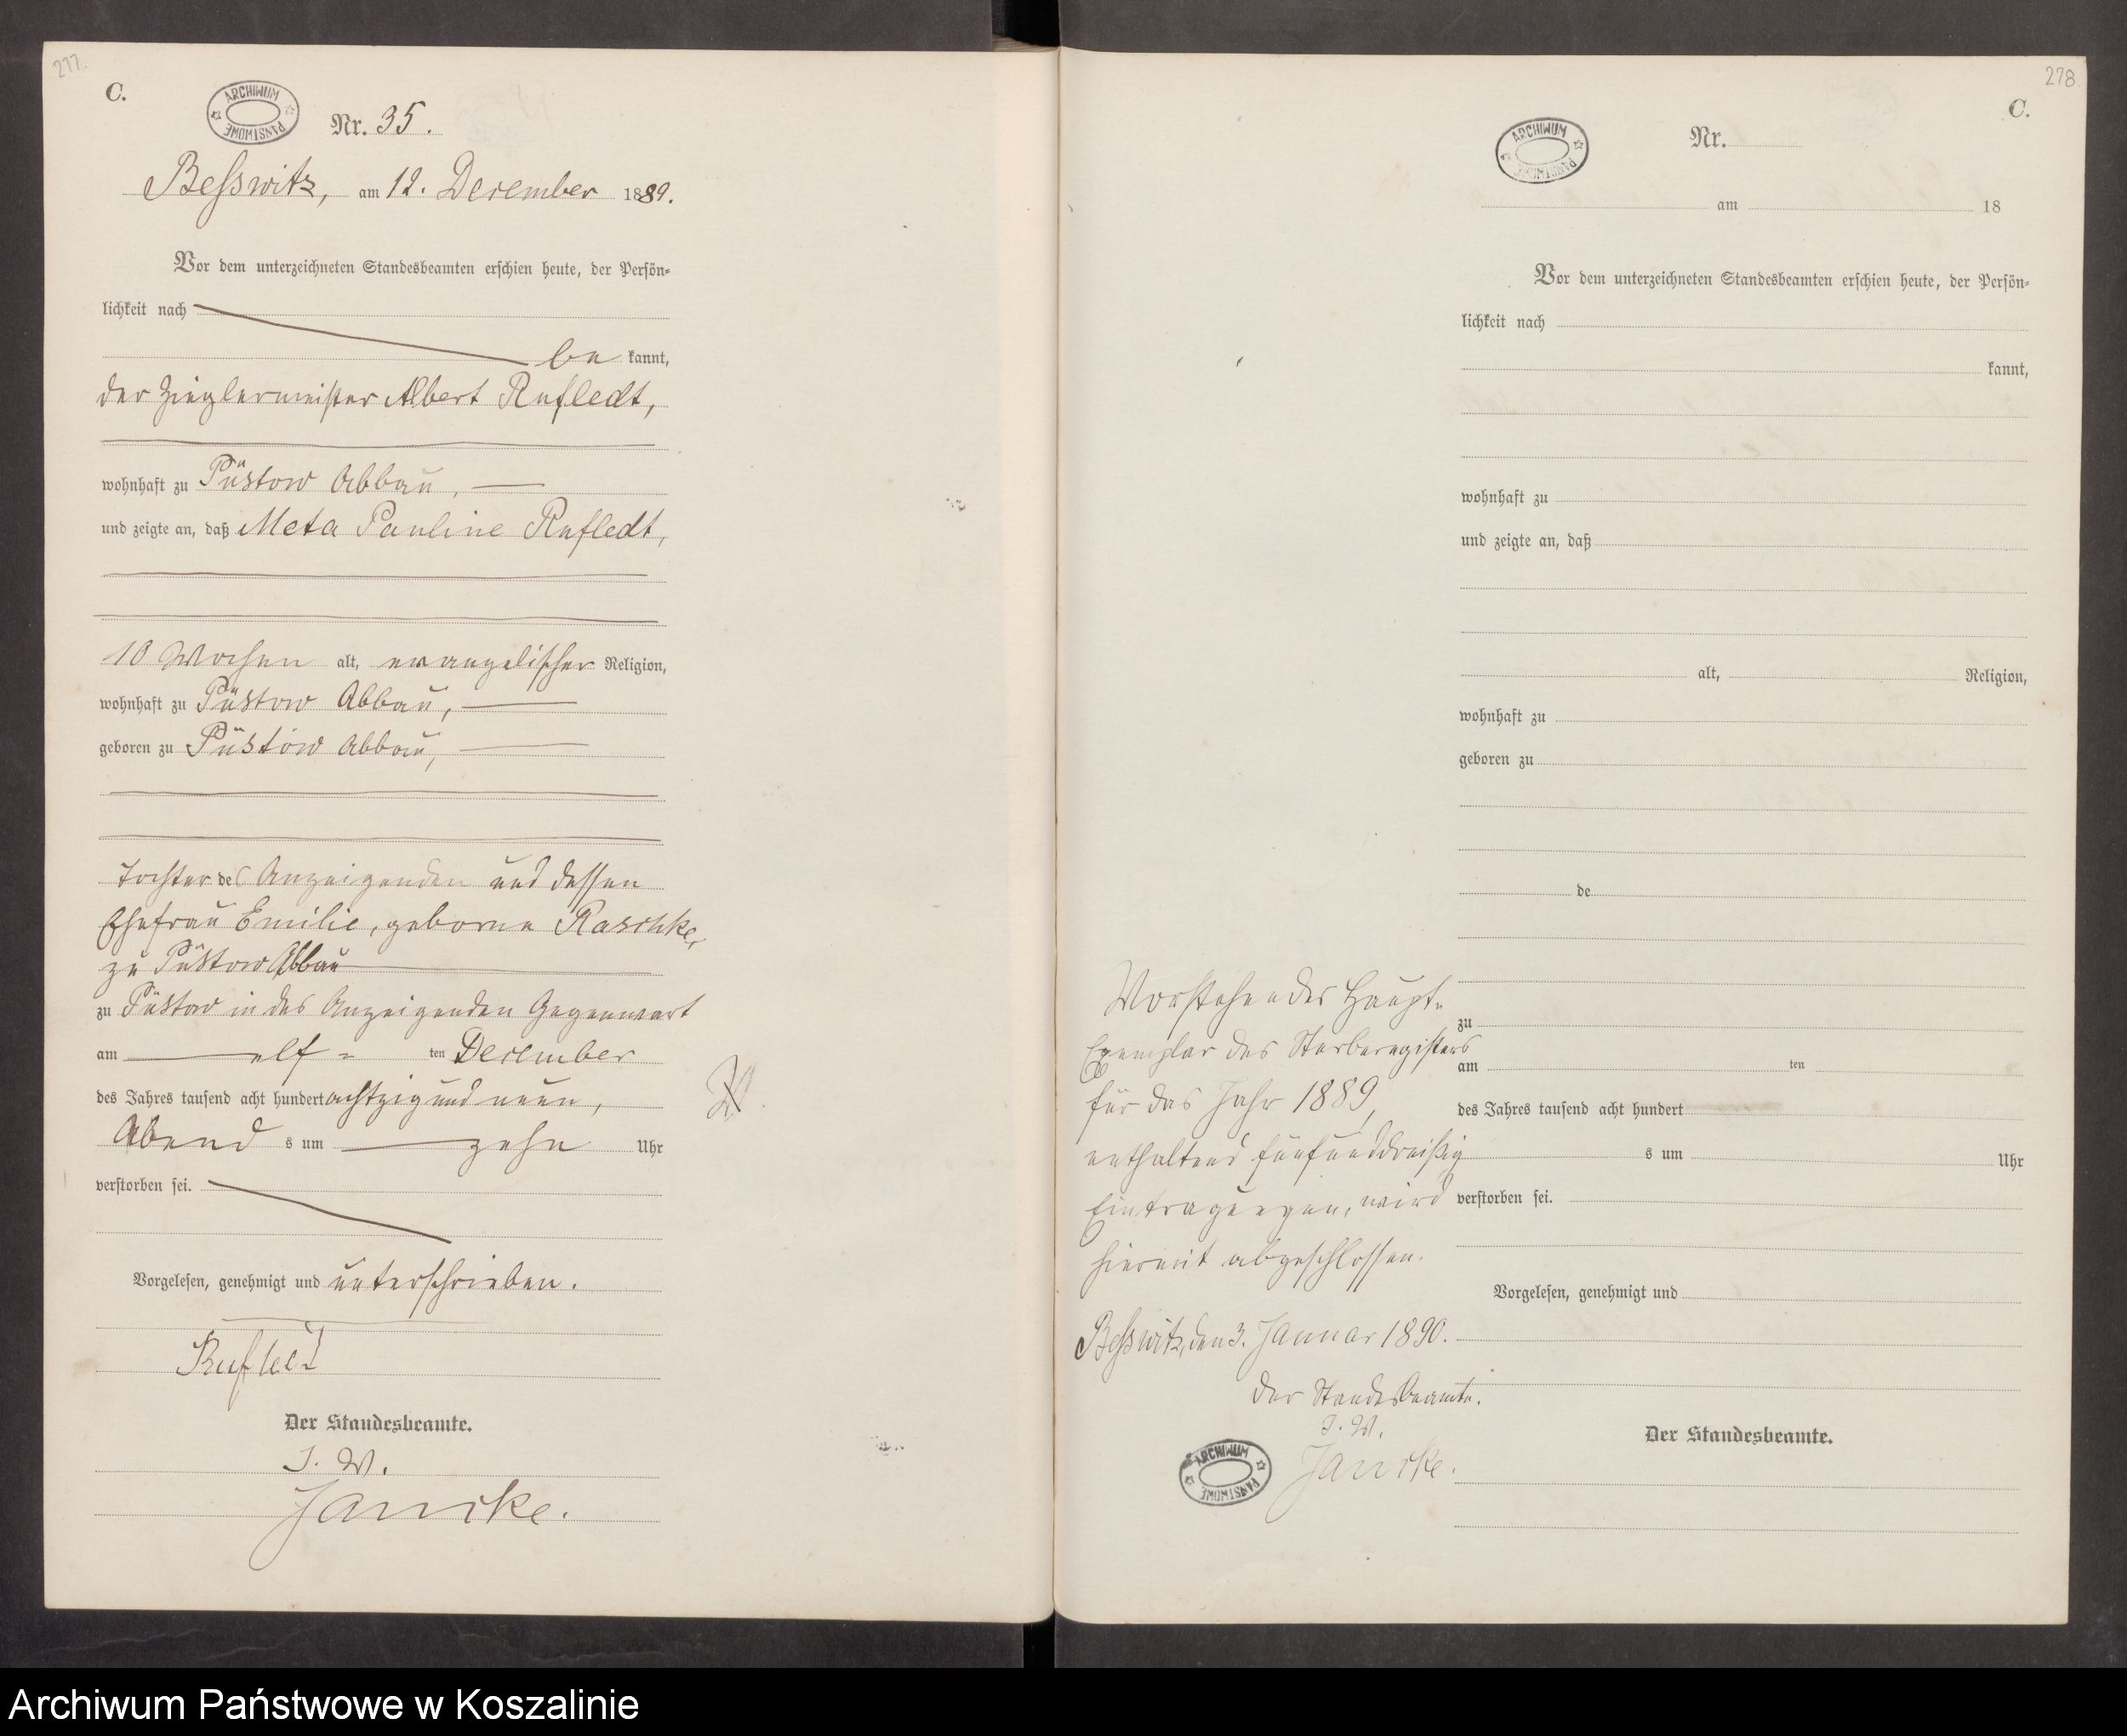 277.
C.
ARCHIWUM PAŃSTWOWE
Nr. 35.
Beßwitz, am 12. December 1889.
Vor dem unterzeichneten Standesbeamten erschien heute, der Persön-
lichkeit nach
be kannt,
der Zieglermeister Albert Rufledt,
wohnhaft zu Püstow Abbau,
und zeigte an, daß Meta Pauline Rufledt,
10 Wochen alt, evangelischer Religion,
wohnhaft zu Püstow Abbau,
geboren zu Püstow Abbau,
Tochter des Anzeigenden und dessen
Ehefrau Emilie, geborne Raschke,
zu Püstow Abbau
zu Püstow in des Anzeigenden Gegenwart
am elf - ten December
des Jahres tausend acht hundert achtzig und neun,
Abend s um zehn Uhr
verstorben sei.
Vorgelesen, genehmigt und unterschrieben.
Rufledt
Der Standesbeamte.
I. V.
Jancke.
278.
C.
ARCHIWUM PAŃSTWOWE
Nr.
am 18
Vor dem unterzeichneten Standesbeamten erschien heute, der Persön-
lichkeit nach
kannt,
wohnhaft zu
und zeigte an, daß
alt, Religion,
wohnhaft zu
geboren zu
de
zu
am ten
des Jahres tausend acht hundert
s um Uhr
verstorben sei.
Vorgelesen, genehmigt und
Der Standesbeamte.
Vorstehendes Haupt-
Exemplar des Sterberegisters
für das Jahr 1889,
enthaltend fünfunddreißig
Eintragungen, wird
hiermit abgeschlossen.
Beßwitz, den 3. Januar 1890.
Der Standesbeamte.
I. V.
Jancke.
ARCHIWUM PAŃSTWOWE
Archiwum Państwowe w Koszalinie